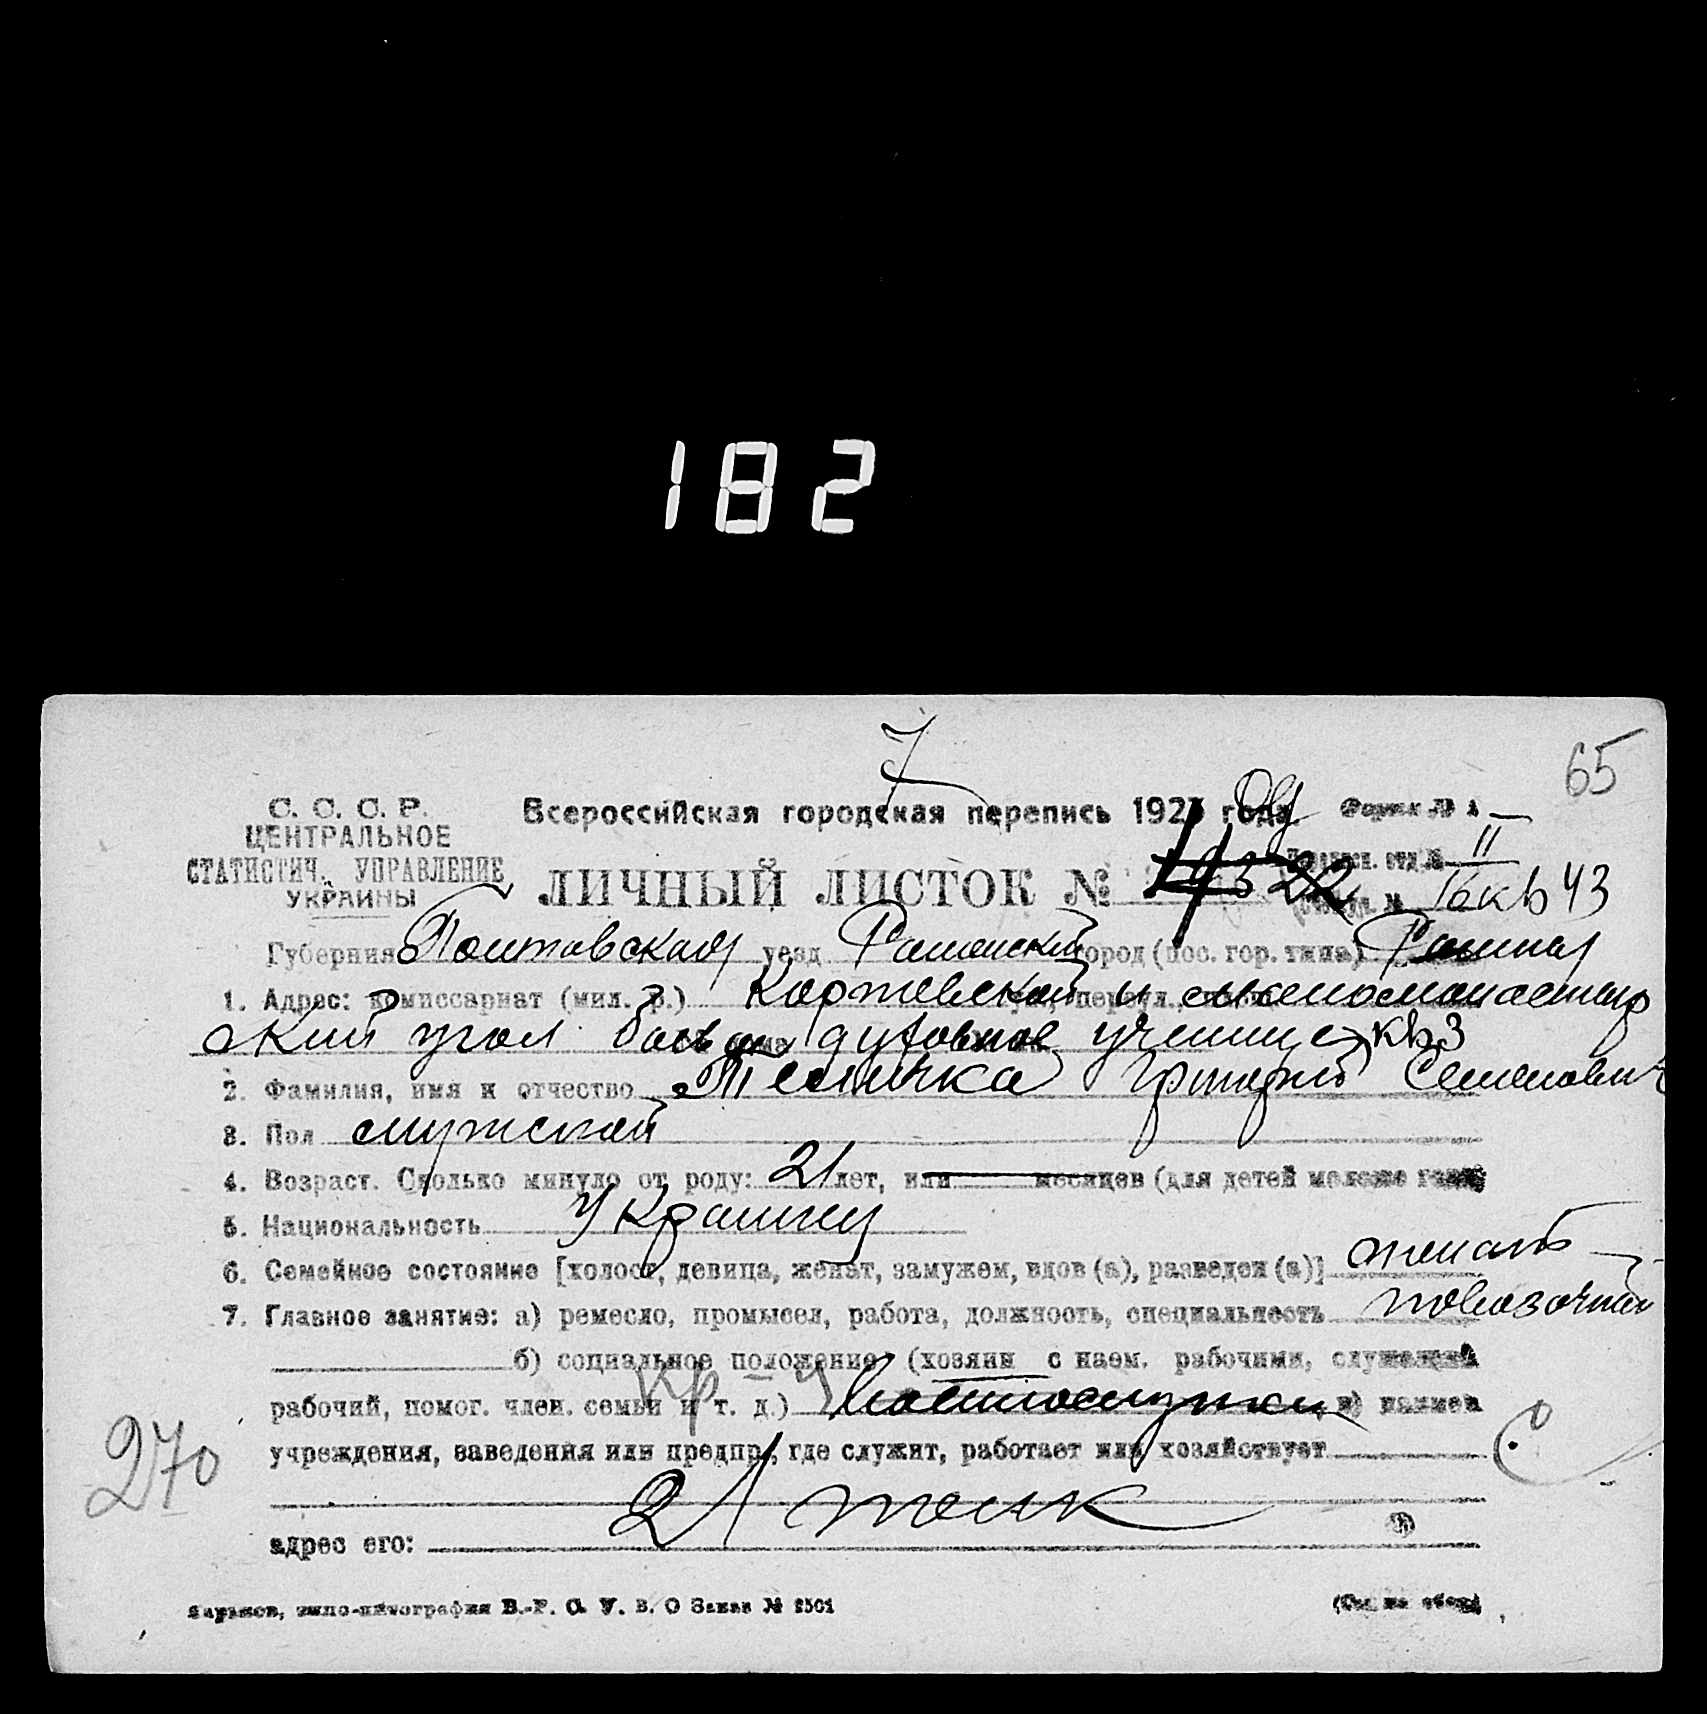 182
7
65
С. С. С. Р.
ЦЕНТРАЛЬНОЕ
СТАТИСТИЧ. УПРАВЛЕНИЕ
УКРАИНЫ
Всероссийская городская перепись 1923 года.
Форма № 1
II
ЛИЧНЫЙ ЛИСТОК №
16 кв 43
Губерния Полтавская уезд Роменский город (пос. гор. типа) Ромны
1. Адрес: комиссариат (мил. р.) Коржевской и
ский угол духовное училище кв 3
2. Фамилия, имя и отчество Теличка Григорий Семенович
3. Пол мужской
4. Возраст. Сколько минуло от роду: 21 лет, или месяцев (для детей моложе года)
5. Национальность Украинец
6. Семейное состояние [холост, девица, женат, замужем, вдов (а), разведен (а)] женат
7. Главное занятие: а) ремесло, промысел, работа, должность, специальность повозочный
б) социальное положение (хозяин с наем. рабочими, служащий
рабочий, помог. член. семьи и т. д.) в) наимен
Кр
учреждения, заведения или предпр., где служит, работает или хозяйствует
270
21
адрес его:
Харьков, типо-литография В. О Заказ № 2501
(См. на обор.)